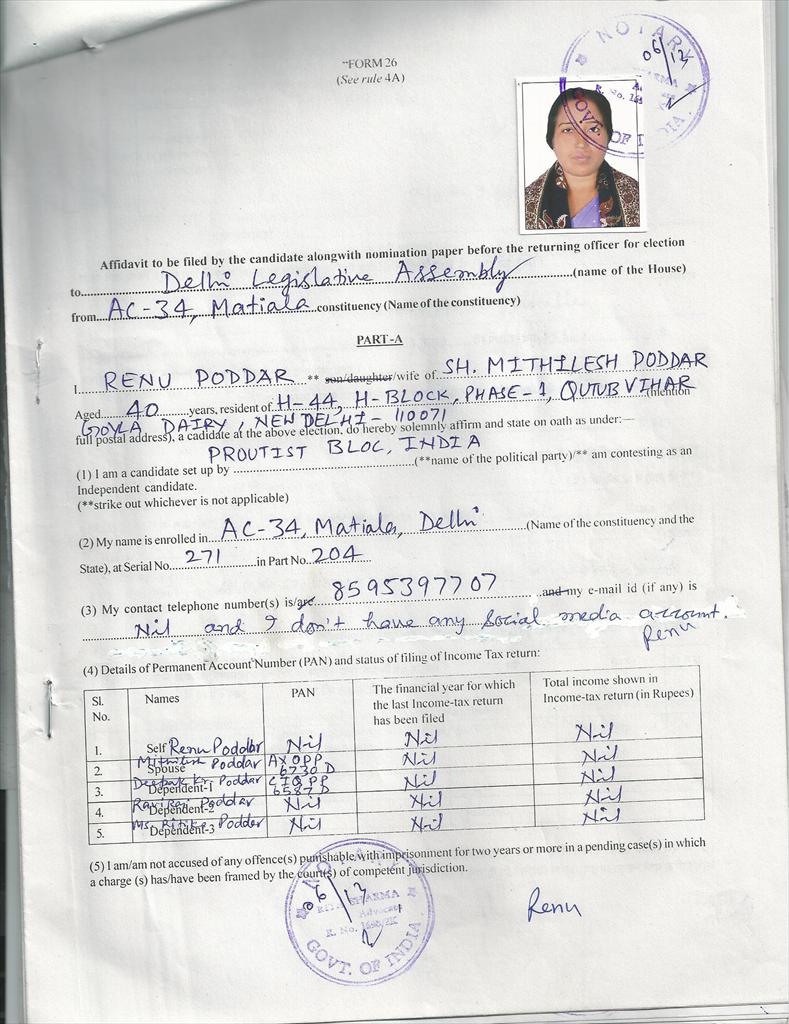 NOTARY
06/13
GOVT. OF INDIA
"FORM 26
(See rule 4A)
Affidavit to be filed by the candidate alongwith nomination paper before the returning officer for election
to Delhi Legislative Assembly (name of the House)
from AC-34, Matiala constituency (Name of the constituency)
PART-A
I RENU PODDAR ** son/daughter/wife of SH. MITHILESH PODDAR
Aged 40 years, resident of H-44, H-BLOCK, PHASE-1, QUTUB VIHAR (mention
GOYLA DAIRY, NEW DELHI-110071
full postal address), a cadidate at the above election, do hereby solemnly affirm and state on oath as under:—
PROUTIST BLOC, INDIA
(1) I am a candidate set up by (**name of the political party)/** am contesting as an
Independent candidate.
(**strike out whichever is not applicable)
(2) My name is enrolled in AC-34, Matiala, Delhi (Name of the constituency and the
State), at Serial No. 271 in Part No. 204
(3) My contact telephone number(s) is/are 8595397707 and my e-mail id (if any) is
Nil and I don't have any social media account.
Renu
(4) Details of Permanent Account Number (PAN) and status of filing of Income Tax return:
Sl. No. Names PAN The financial year for which the last Income-tax return has been filed Total income shown in Income-tax return (in Rupees)
1. Self Renu Poddar Nil Nil Nil
2. Mithilesh Poddar Spouse AXOPP 6730 D Nil Nil
3. Deepak Kr. Poddar Dependent-1 CIQPP 6587 D Nil Nil
4. Ravi Raj Poddar Dependent-2 Nil Nil Nil
5. Ms. Ritika Podder Dependent-3 Nil Nil Nil
(5) I am/am not accused of any offence(s) punishable with imprisonment for two years or more in a pending case(s) in which
a charge (s) has/have been framed by the court(s) of competent jurisdiction.
Renu
NOTARY
06/13
SHARMA
Advocate
GOVT. OF INDIA